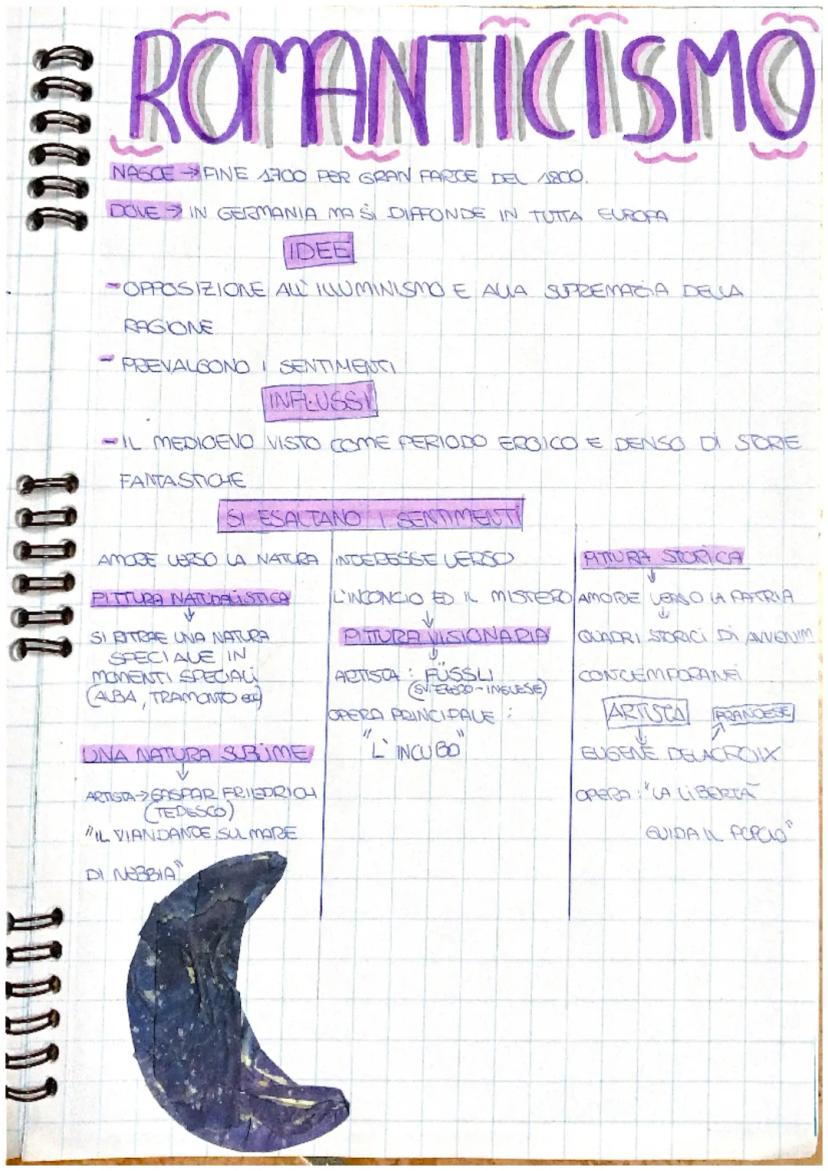 ROMANTICISMO
NASCE → FINE 1700 PER GRAN PARTE DEL 1800.
DOVE → IN GERMANIA MA SI DIFFONDE IN TUTTA EUROPA
IDEE
- OPPOSIZIONE ALL'ILLUMINISMO E ALLA SUPREMAZIA DELLA
RAGIONE
- PREVALGONO I SENTIMENTI
INFLUSSI
- IL MEDIOEVO VISTO COME PERIODO EROICO E DENSO DI STORIE
FANTASTICHE
SI ESALTANO I SENTIMENTI
AMORE VERSO LA NATURA
PITTURA NATURALISTICA
↓
SI RITRAE UNA NATURA
SPECIALE IN
MOMENTI SPECIALI
(ALBA, TRAMONTO ecc)
UNA NATURA SUBLIME
↓
ARTISTA → GASPAR FRIEDRICH
(TEDESCO)
"IL VIANDANTE SUL MARE
DI NEBBIA"
INTERESSE VERSO
L'INCONCIO ED IL MISTERO
↓
PITTURA VISIONARIA
↓
ARTISTA: FÜSSLI
(SVIZZERO-INGLESE)
OPERA PRINCIPALE:
"L'INCUBO"
PITTURA STORICA
↓
AMORE VERSO LA PATRIA
↓
QUADRI STORICI DI AVVENIM
CONTEMPORANEI
ARTISTA FRANCESE
EUGENE DELACROIX
OPERA: "LA LIBERTÀ
GUIDA IL POPOLO"